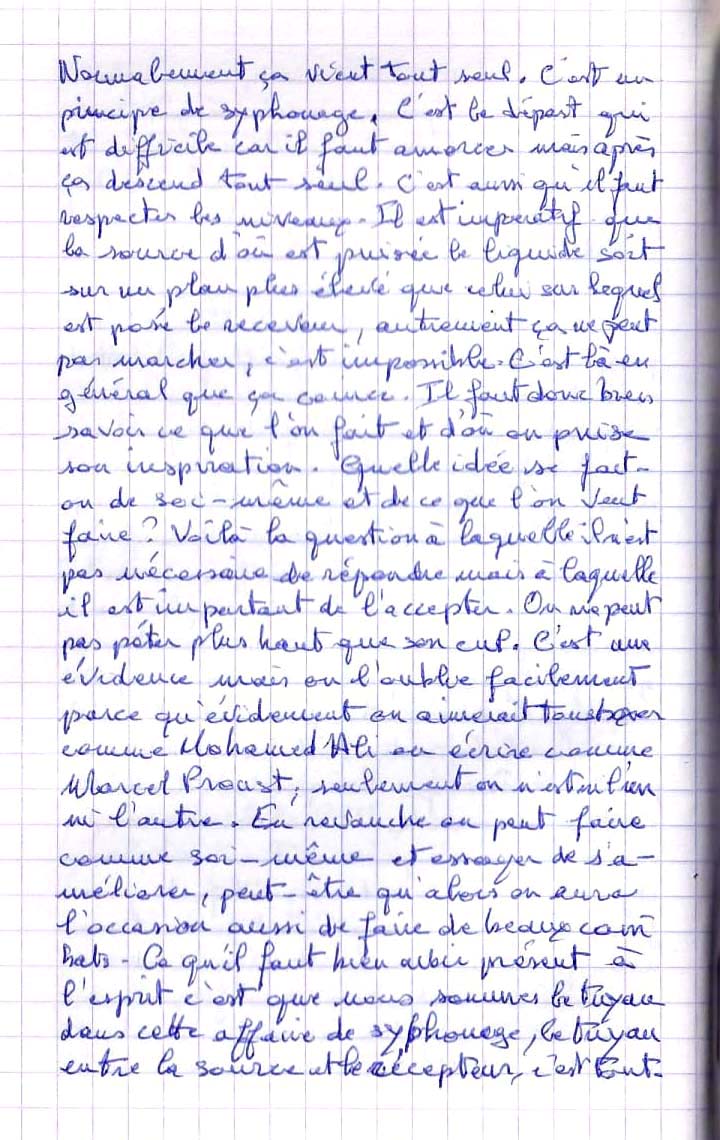 Normalement ça vient tout seul. C'est un
principe de syphonage. C'est le départ qui
est difficile car il faut amorcer mais après
ça descend tout seul. C'est aussi qu'il faut
respecter les niveaux. Il est impératif que
la source d'où est puisée le liquide soit
sur un plan plus élevé que celui sur lequel
est posé le receveur, autrement ça ne peut
pas marcher, c'est impossible. C'est là en
général que ça coince. Il faut donc bien
savoir ce que l'on fait et d'où on puise
son inspiration. Quelle idée se fait-
on de soi-même et de ce que l'on veut
faire ? Voilà la question à laquelle il n'est
pas nécessaire de répondre mais à laquelle
il est important de l'accepter. On ne peut
pas péter plus haut que son cul. C'est une
évidence mais on l'oublie facilement
parce qu'évidement on aimerait tous boxer
comme Mohamed Ali ou écrire comme
Marcel Proust, seulement on n'est ni l'un
ni l'autre. En revanche on peut faire
comme soi-même et essayer de s'a-
méliorer, peut-être qu'alors on aura
l'occasion aussi de faire de beaux com
bats. Ce qu'il faut bien avoir présent à
l'esprit c'est que nous sommes le tuyau
dans cette affaire de syphonage, le tuyau
entre la source et le récepteur, c'est tout.